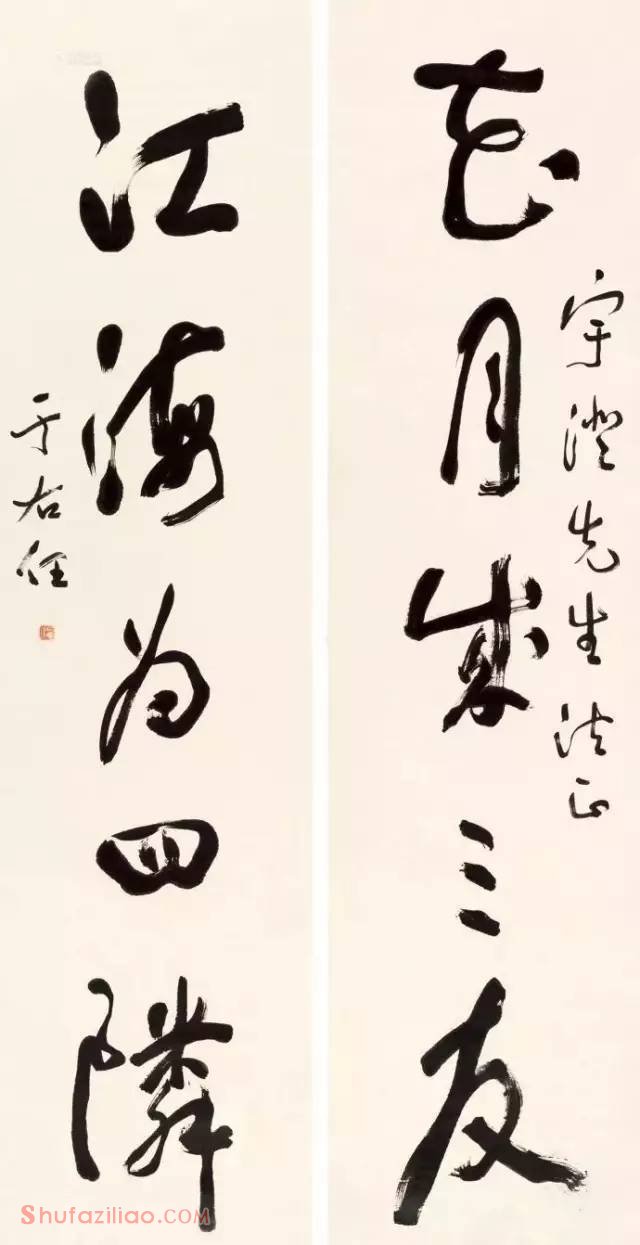 宇澄先生法正
花月成三友
江海为四隣
于右任
Shufaziliao.COM